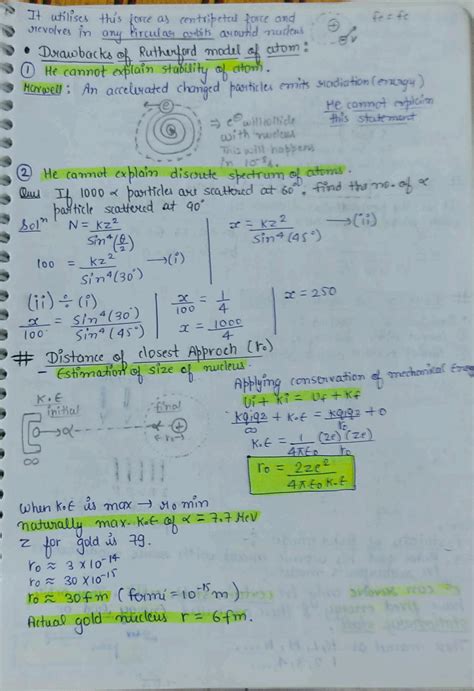 It utilises this force as centripetal force and
revolves in any circular orbits around nucleus
fe = fc
• Drawbacks of Rutherford model of atom:
① He cannot explain stability of atom.
Maxwell: An accelerated changed particles emits radiation (energy)
He cannot explain
this statement
⇒ e⊖ will collide
with nucleus
This will happen
in 10⁻⁸s.
② He cannot explain discrete spectrum of atoms.
Que: If 1000 α particles are scattered at 60°, find the no. of α
particle scattered at 90°
Solⁿ N = kz² / Sin⁴(θ/2)
100 = kz² / Sin⁴(30°) → (i)
x = kz² / Sin⁴(45°) → (ii)
(ii) ÷ (i)
x/100 = Sin⁴(30°) / Sin⁴(45°)
x/100 = 1/4
x = 1000/4
x = 250
# Distance of closest Approch (r₀)
- Estimation of size of nucleus.
K.E
initial
final
α
r₀
∞
Applying conservation of mechanical Energy
Ui + Ki = Uf + Kf
kq₁q₂/∞ + K.E = kq₁q₂/r₀ + 0
K.E = 1/4πε₀ (2e)(ze)/r₀
r₀ = 2ze² / 4πε₀ K.E
When K.E is max → r₀ min
naturally max. K.E of α = 7.7 MeV
Z for gold is 79.
r₀ ≈ 3 × 10⁻¹⁴
r₀ ≈ 30 × 10⁻¹⁵
r₀ ≈ 30 fm (formi = 10⁻¹⁵ m)
Actual gold nucleus r = 6 fm.